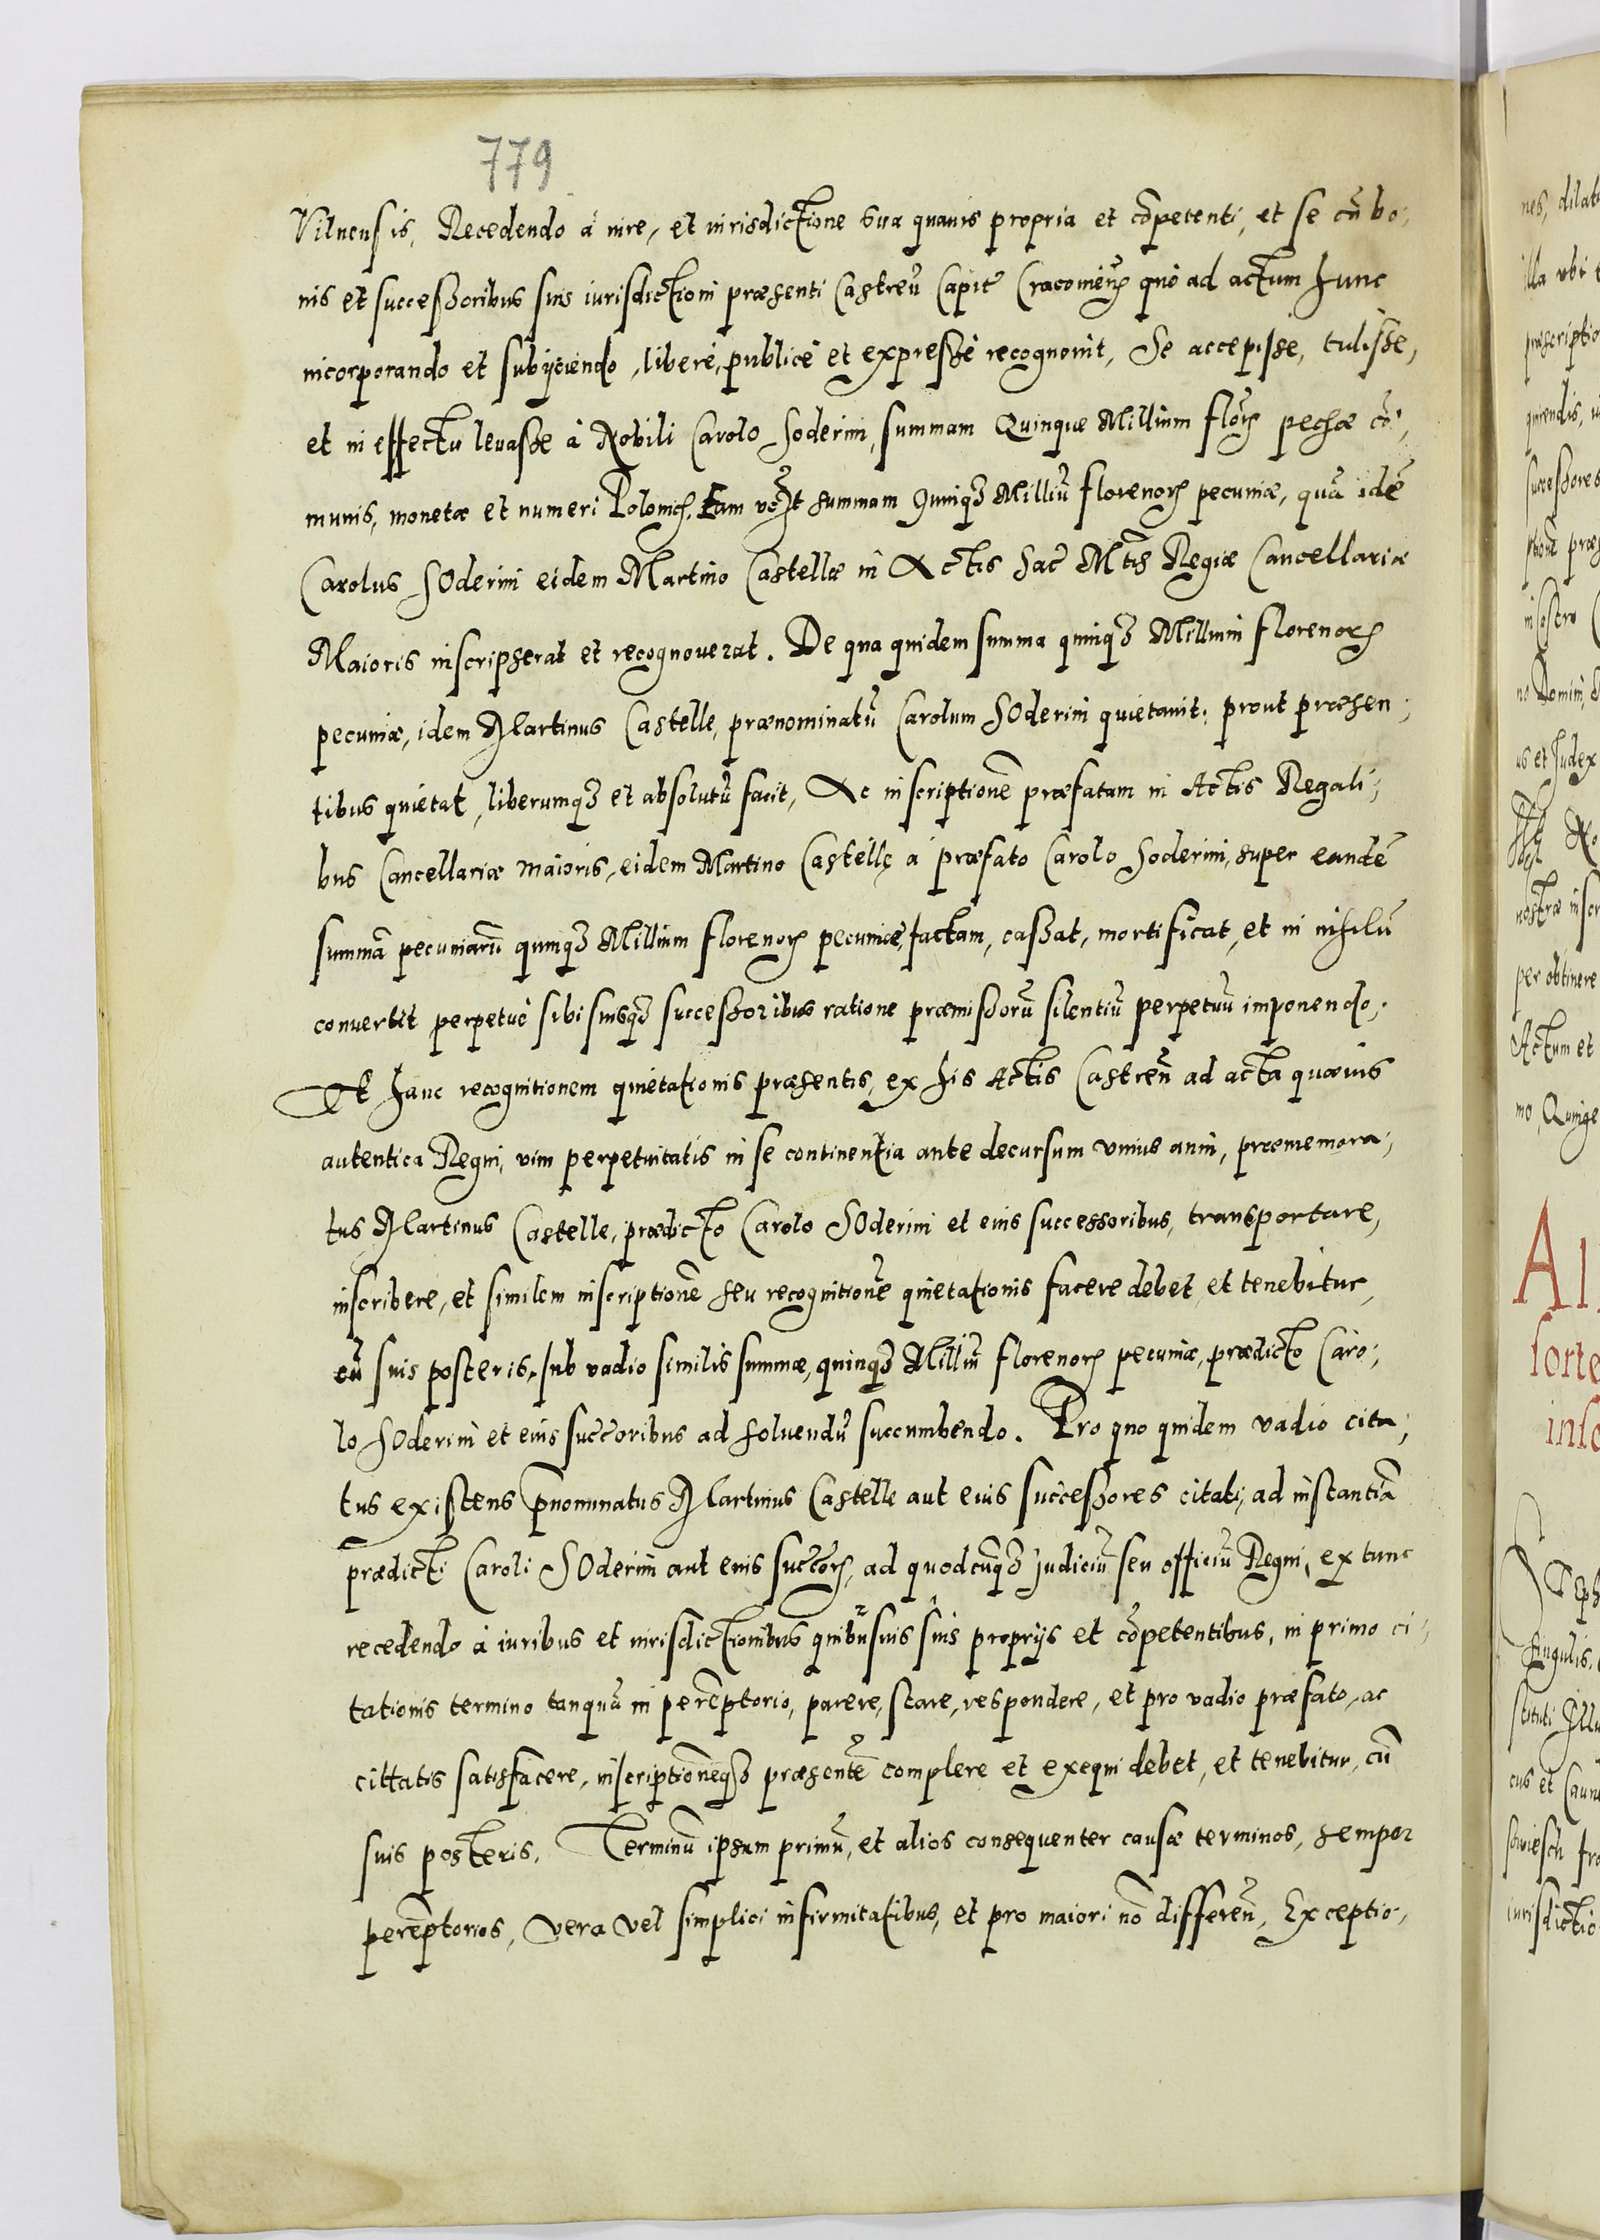 779
Vilnensis, Recedendo à iure, et iurisdictione sua quauis propria et cõpetenti, et se cũ bo-
nis et successoribus suis iurisdictioni præsenti Castreñ Capit Cracouieñ quo ad actum hunc
incorporando et subijciendo, libere, publicè et expressè recognouit, Se accepisse, tulisse,
et in effectu leuasse à Nobili Carolo Soderini, summam Quinque Millium flor pecuæ cõ-
munis, monetæ et numeri Polonic. Eam summam quinqȝ Milliũ florenorȝ pecuniæ, quã idẽ
Carolus SOderini eidem Martino Castellæ in Actis Sac Mtis Regiæ Cancellariæ
Maioris inscripserat et recognouerat. De qua quidem summa quinqȝ Millium florenorȝ
pecuniæ, idem Martinus Castelle, prænominatũ Carolum SOderini quietauit, prout præsen-
tibus quietat, liberumqȝ et absolutũ facit, Ac inscriptionẽ præfatam in Actis Regali-
bus Cancellariæ maioris, eidem Martino Castellę à præfato Carolo Soderini, super eandẽ
summã pecuniarũ quinqȝ Millium florenorȝ pecuniæ, factam, cassat, mortificat, et in nihilũ
conuertit perpetuè sibi suisqȝ successoribus ratione præmissorũ silentiũ perpetuũ imponendo.
Et hanc recognitionem quietationis præsentis, ex his Actis Castreñ ad acta quæuis
autentica Regni, vim perpetuitatis in se continentia ante decursum vnius anni, præmemora-
tus Martinus Castelle, prædicto Carolo SOderini et eius successoribus, transportare,
inscribere, et similem inscriptionẽ seu recognitionẽ quietationis facere debet et tenebitur,
cũ suis posteris, sub vadio similis summæ, quinqȝ Milliũ florenorȝ pecuniæ, prædicto Caro-
lo SOderini et eius succoribus ad soluendũ succumbendo. Pro quo quidem vadio cita-
tus existens pnominatus Martinus Castelle aut eius successores citati, ad instantiã
prædicti Caroli SOderini aut eius succorȝ, ad quodcũqȝ judiciũ seu officiũ Regni, ex tunc
recedendo à iuribus et iurisdictionibus quibusuis suis proprijs et cõpetentibus, in primo ci-
tationis termino tanquã in perẽptorio, parere, stare, respondere, et pro vadio præfato, ac
cittatis satisfacere, inscriptionẽqȝ præsentẽ complere et exequi debet, et tenebitur, cũ
suis posteris. Terminũ ipsum primũ, et alios consequenter causæ terminos, semper
perẽptorios, vera vel simplici infirmitatibus, et pro maiori nõ differeñ, Exceptio-